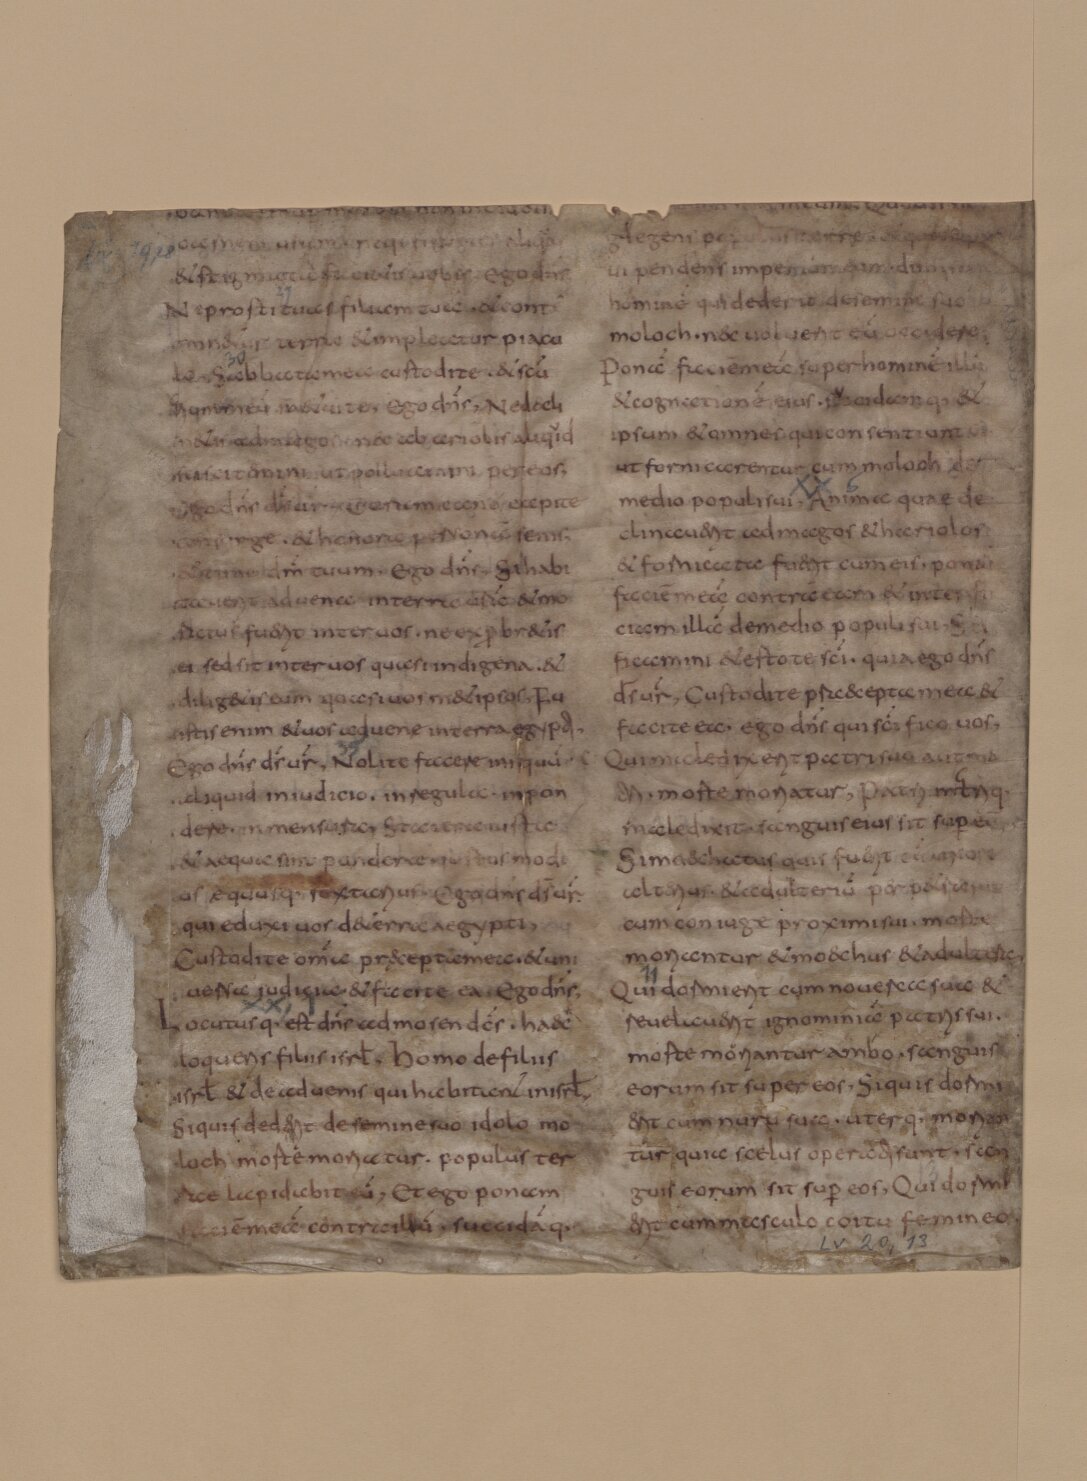 Lv 19,28
& stigmata facietis uobis. Ego dns
29
Ne prostituas filiam tuã. & cont
omn&ur terra & impleatur piacu
30
lo. Sabbata mea custodite. & scũ
arium meũ m&uite. Ego dns, Ne decli
n&is ad magos. nec ab ariolis aliqđ
sciscitamini ut polluamini per eos.
Ego dns ds ur. Coram cano capite
consurge. & honora personã senis.
& time dm̃ tuum. Ego dns. Si habi
auerit aduena in terra urã & mo
ratus fuerit inter uos. ne exprobr&is
ei sed sit inter uos quasi indigena. &
diligetis eum quasi uos m&ipsos. Fu
istis enim & uos aduene in terra egypti.
35
Ego dns ds ur, Nolite facere iniquũ
aliquid in iudicio. in regula. in pon
dere. in mensura, Statera iusta
& aequa sint pondera iustus modi
us aequusq. sextarius. Ego dns ds ur.
qui eduxi uos de terra aegypti,
Custodite omia praecepta mea. & uni
uersa iudicia. & facite ea. Ego dns,
XX, 1
Locutusq. est dns ad mosen dcs. haec
loqueris filiis isrl. Homo de filiis
isrl & de aduenis qui habitant in isrl,
Siquis dederit de semine suo idolo mo
loch morte moriatur. populus ter
rae lapidabit eũ, Et ego ponam
faciẽ meã contra illũ. succidãq.
glegens populus terrae
ui pendens imperium
hominẽ qui dederit de semine suo
moloch. nec uoluerit eũ occidere.
Ponã faciẽ meã super hominẽ illũ
& cognationẽ eius. succidamq. &
ipsum & omnes qui consentiunt
ut fornicarentur cum moloch de
XX 6
medio populi sui, Anima quae de
clinauerit ad magos & hariolos
& fornicata fuerit cum eis. ponã
faciẽ meã contra eam & interfi
ciam illã de medio populi sui. Sc̃i
ficamini & estote sc̃i. quia ego dns
ds ur, Custodite praecepta mea &
facite ea. ego dns qui sc̃ifico uos,
Qui maledixerit patri suo aut ma
tri. morte moriatur, Patri matriq.
maledixit. sanguis eius sit super eũ
Si mechatus quis fuerit cũ uxore
alterius. & adulteriũ perpetrauit
cum coniuge proximi sui. morte
moriantur & moechus & adultera,
11
Qui dormierit cum nouerca sua &
reuelauerit ignominiã patris sui.
morte moriantur ambo. sanguis
eorum sit super eos, Siquis dormi
erit cum nuru sua. uterq. moriam
tur quia scelus operati sunt. san
guis eorum sit super eos, Qui dormi
erit cum masculo coitu femineo.
Lv 20, 13